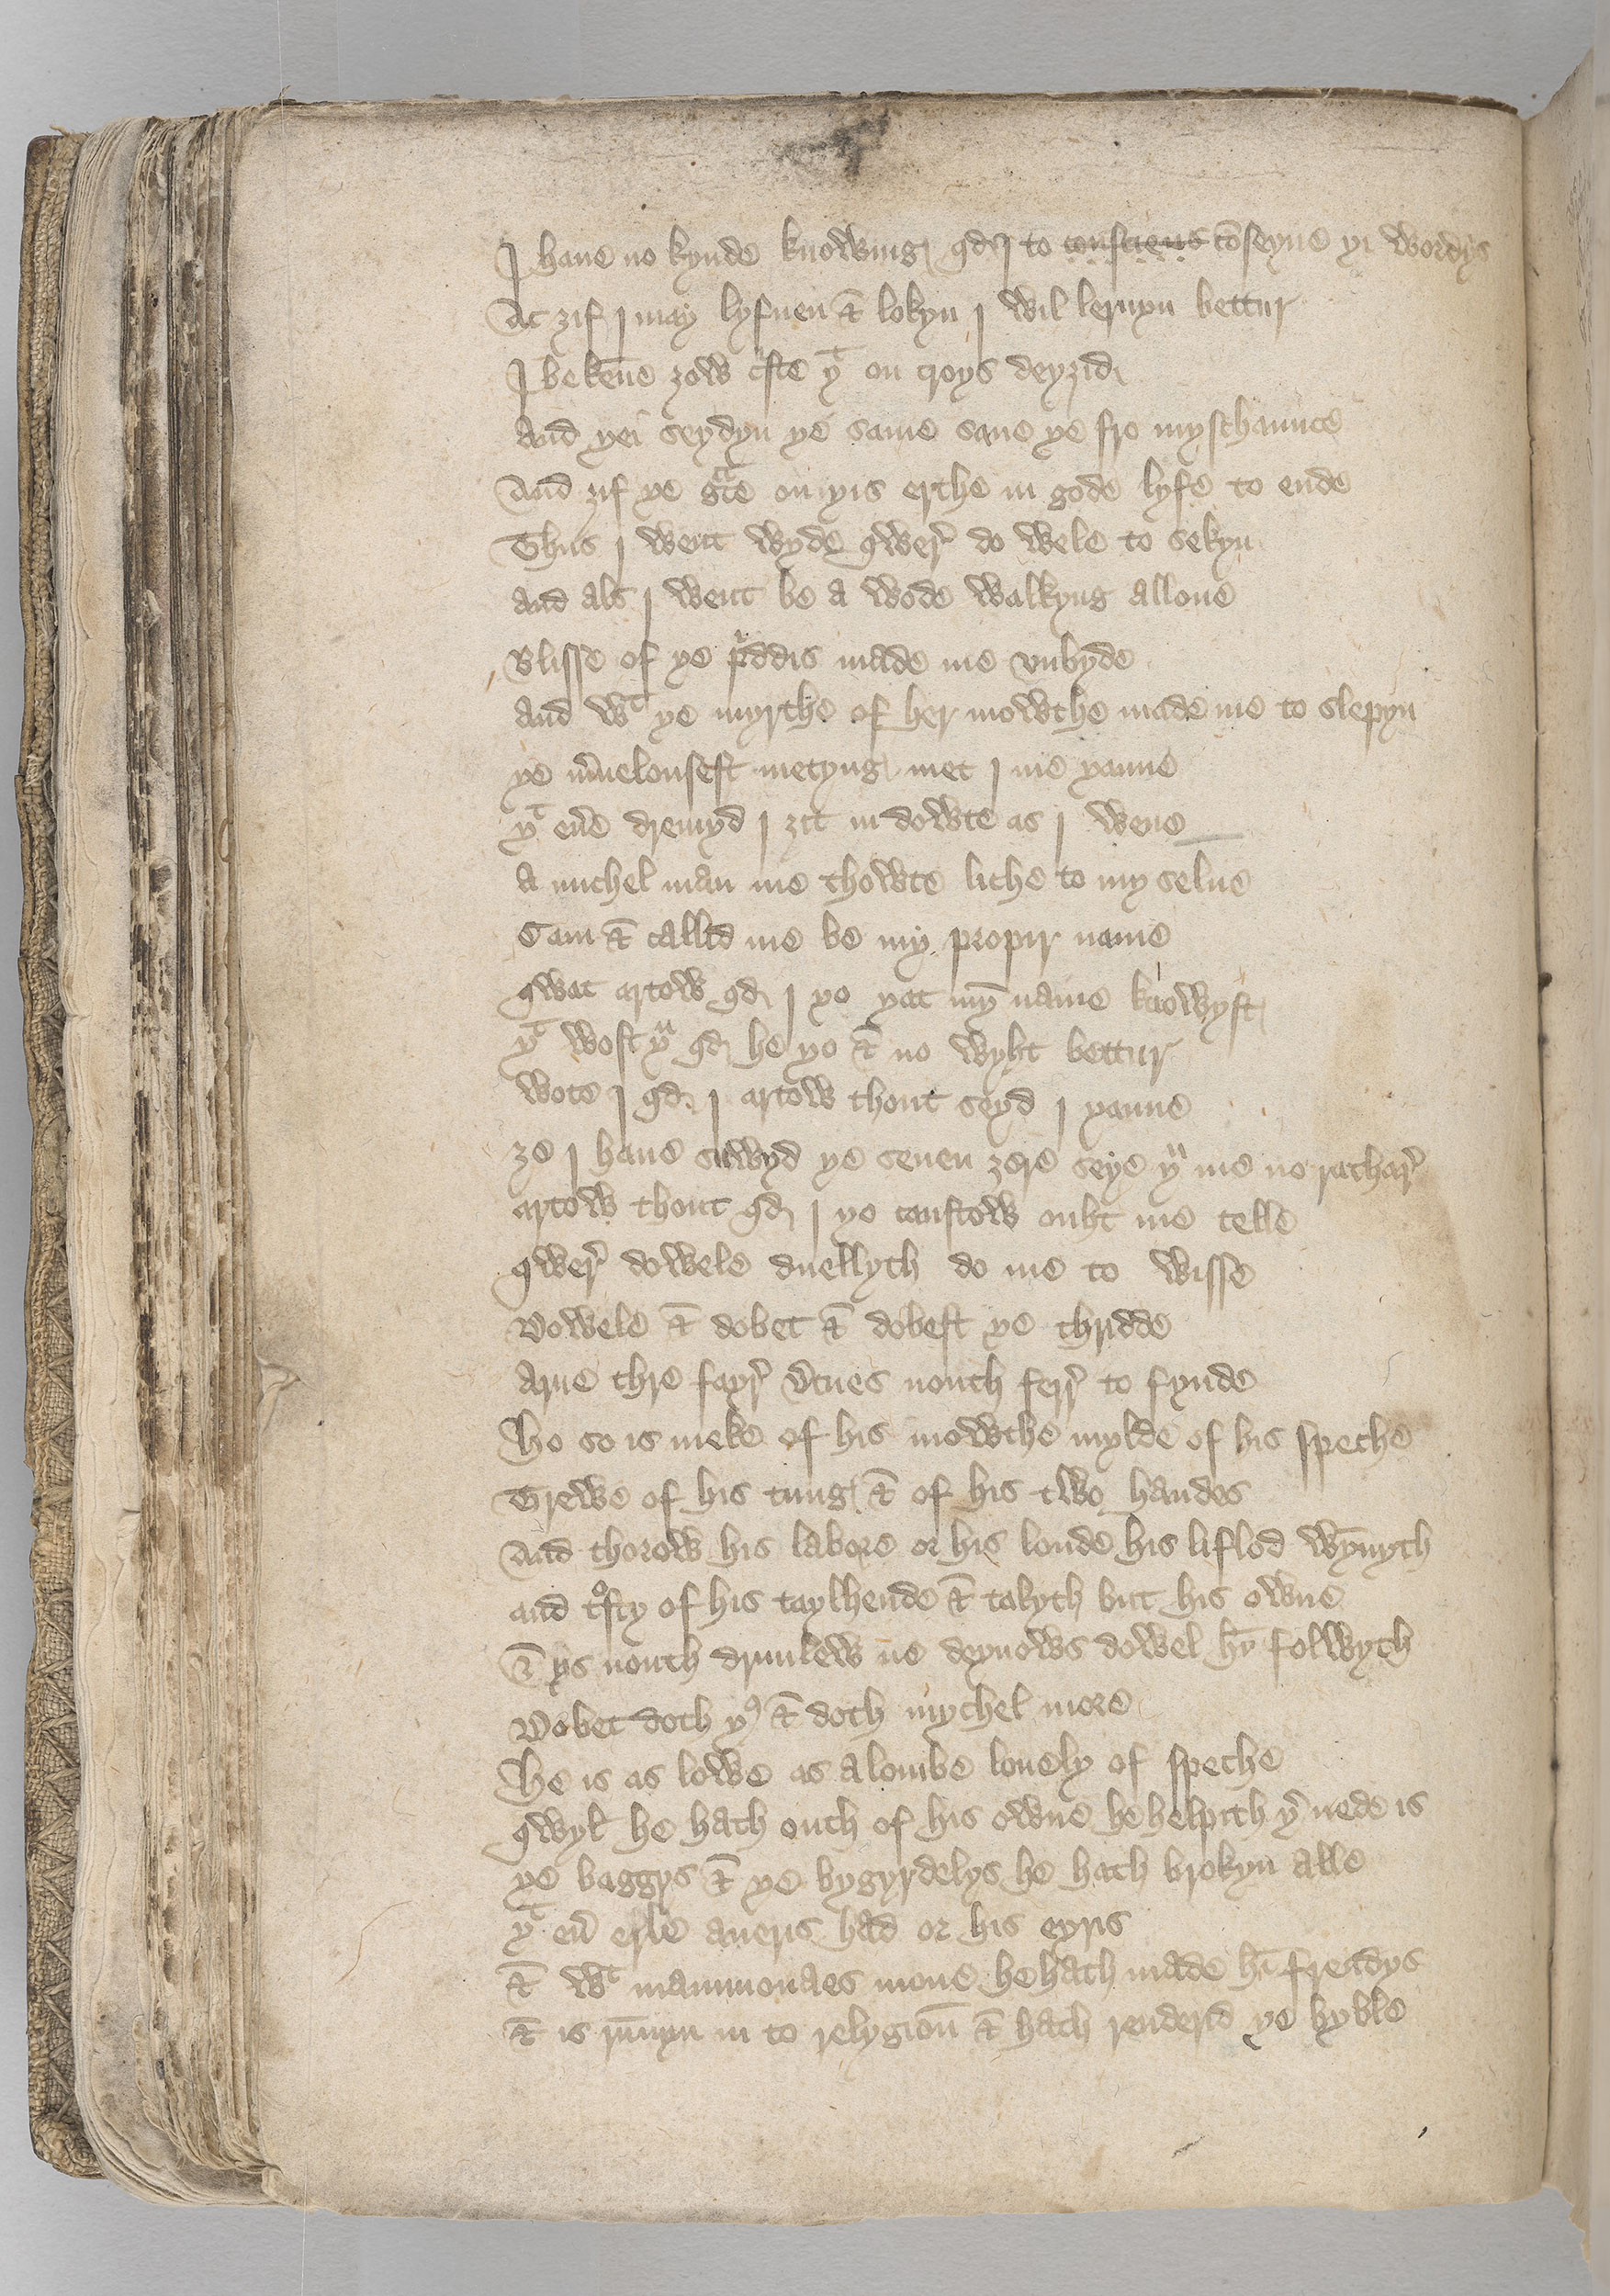 I haue no kynde knowing qd I to consciens cōseyue yi wordys
Ac zif I may lyfuen & lokyn I wil lernyn bettur
I bekēne zow cͥste yͭ on croys deyzid
And yei seydyn ye same saue ye fro myschaunce
And zif ye gͣce on yis erthe in gode lyfe to ende
Thus I went wyde qwer̉ do wele to sekyn
And als I went be a wode walkyng allone
Blisse of ye bͥddis made me vnbyde
And wͭ ye myrthe of her mowthe made me to slepyn
ye m̉uelousest metyng met I me yanne
yͭ eủe dremyd I zit in dowte as I wene
A muchel man me thowte liche to my selue
Cam & callid me be my propir name
qwat artow qd I yo yat my name knowyst
yͭ wost yͧ qd he yo & no wyht bettur
Wote I qd I artow thout seyd I yanne
ze I haue suwyd ye seuen zere seye yͧ me no rathar̉
artow thout qd I yo canstow ouht me telle
qwer̉ dowele duellyth do me to wisse
Dowele & dobet & dobest ye thridde
Arne thre fayr̉ v̉tues nouth ferr̉ to fynde
Ho so is meke of his mowthe mylde of his speche
Trewe of his tung & of his two handes
And thorow his labore or his londe his liflod wȳnyth
and tͦsty of his taylhende & takyth but his owne
& ys nouth drunlew ne deynows dowel hȳ folwyth
Dobet doth yꝰ & doth mychel more
He is as lowe as a lombe louely of speche
qwyl he hath outh of his owne he helpith yͬ nede is
ye baggys & ye bygyrdelys he hath brokyn alle
yͭ eủ erle aueris had or his eyris
& wͭ mammonaes mone he hath made hī frendys
& is rūnyn in to relygioū & hath renderid ye byble